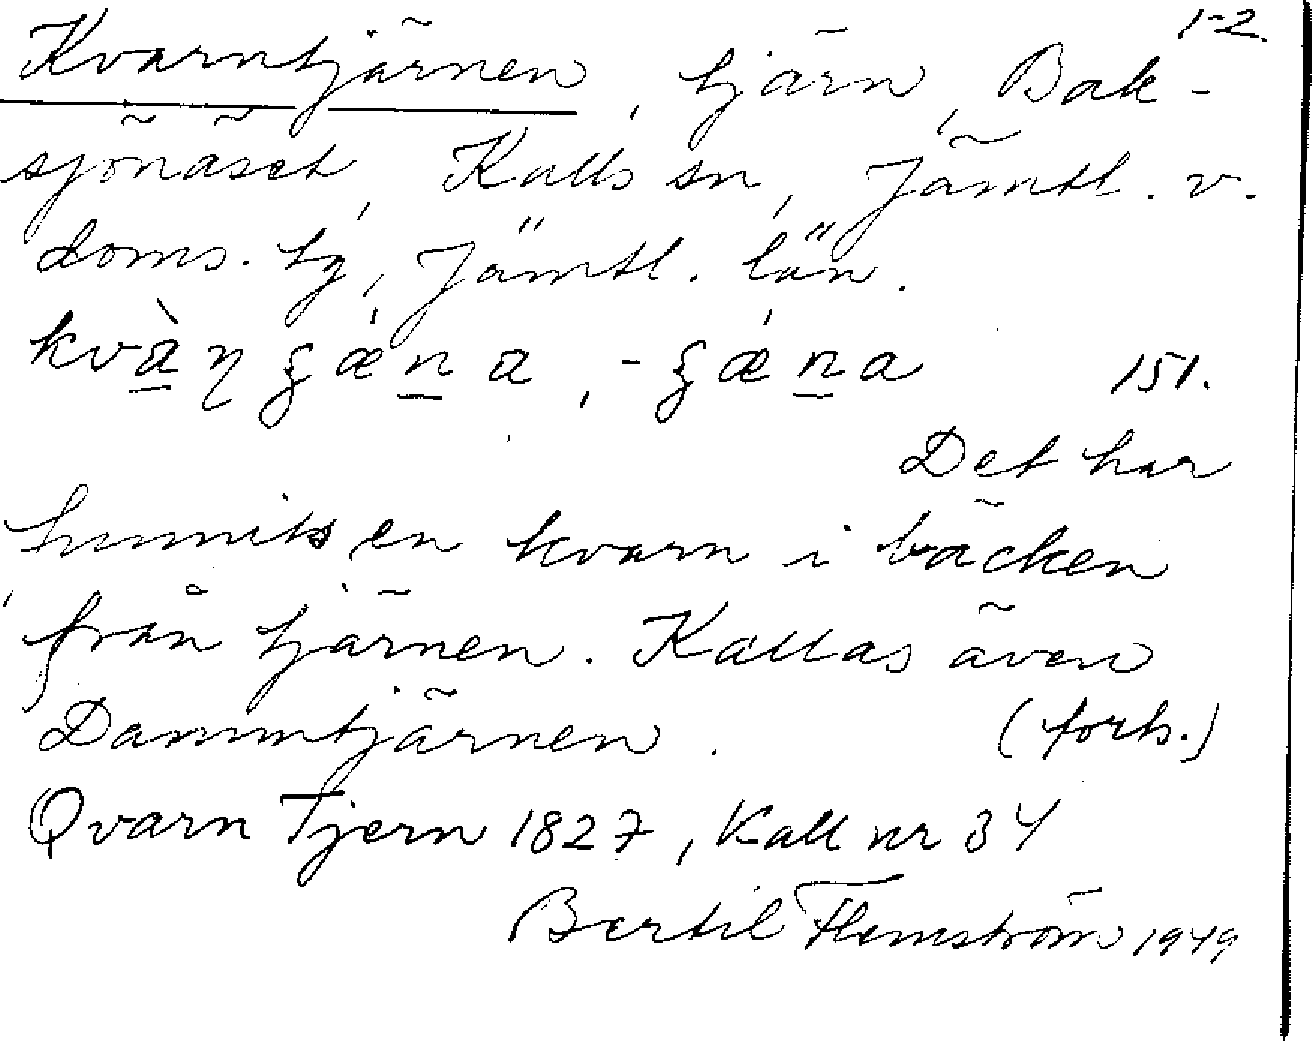 1-2.
Kvarntjärnen, tjärn, Bak-
sjönäset, Kalls sn, Jämtl. v.
doms. tg, Jämtl. län.
kvàŋgǽna, -gǽna 151.
Det har
funnits en kvarn i bäcken
från tjärnen. Kallas även
Dammtjärnen. (forts.)
Qvarn Tjern 1827, Kall nr 34
Bertil Flemström 1949